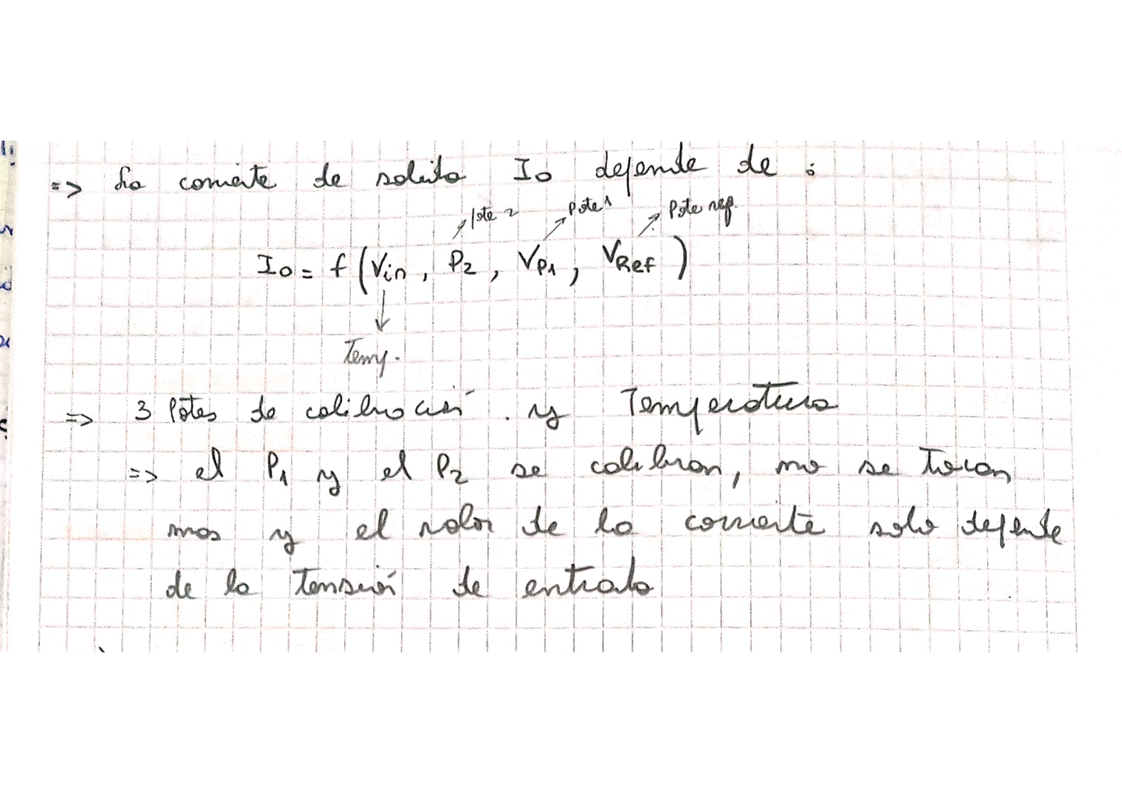 => La corriente de salida Io depende de :
Pote 2 Pote 1 Pote ref.
Io = f (Vin , P2 , VP1 , VRef )
Temp.
=> 3 Potes de calibración . y Temperatura
=> el P1 y el P2 se calibran, no se tocan
mas y el valor de la corriente solo depende
de la tensión de entrada